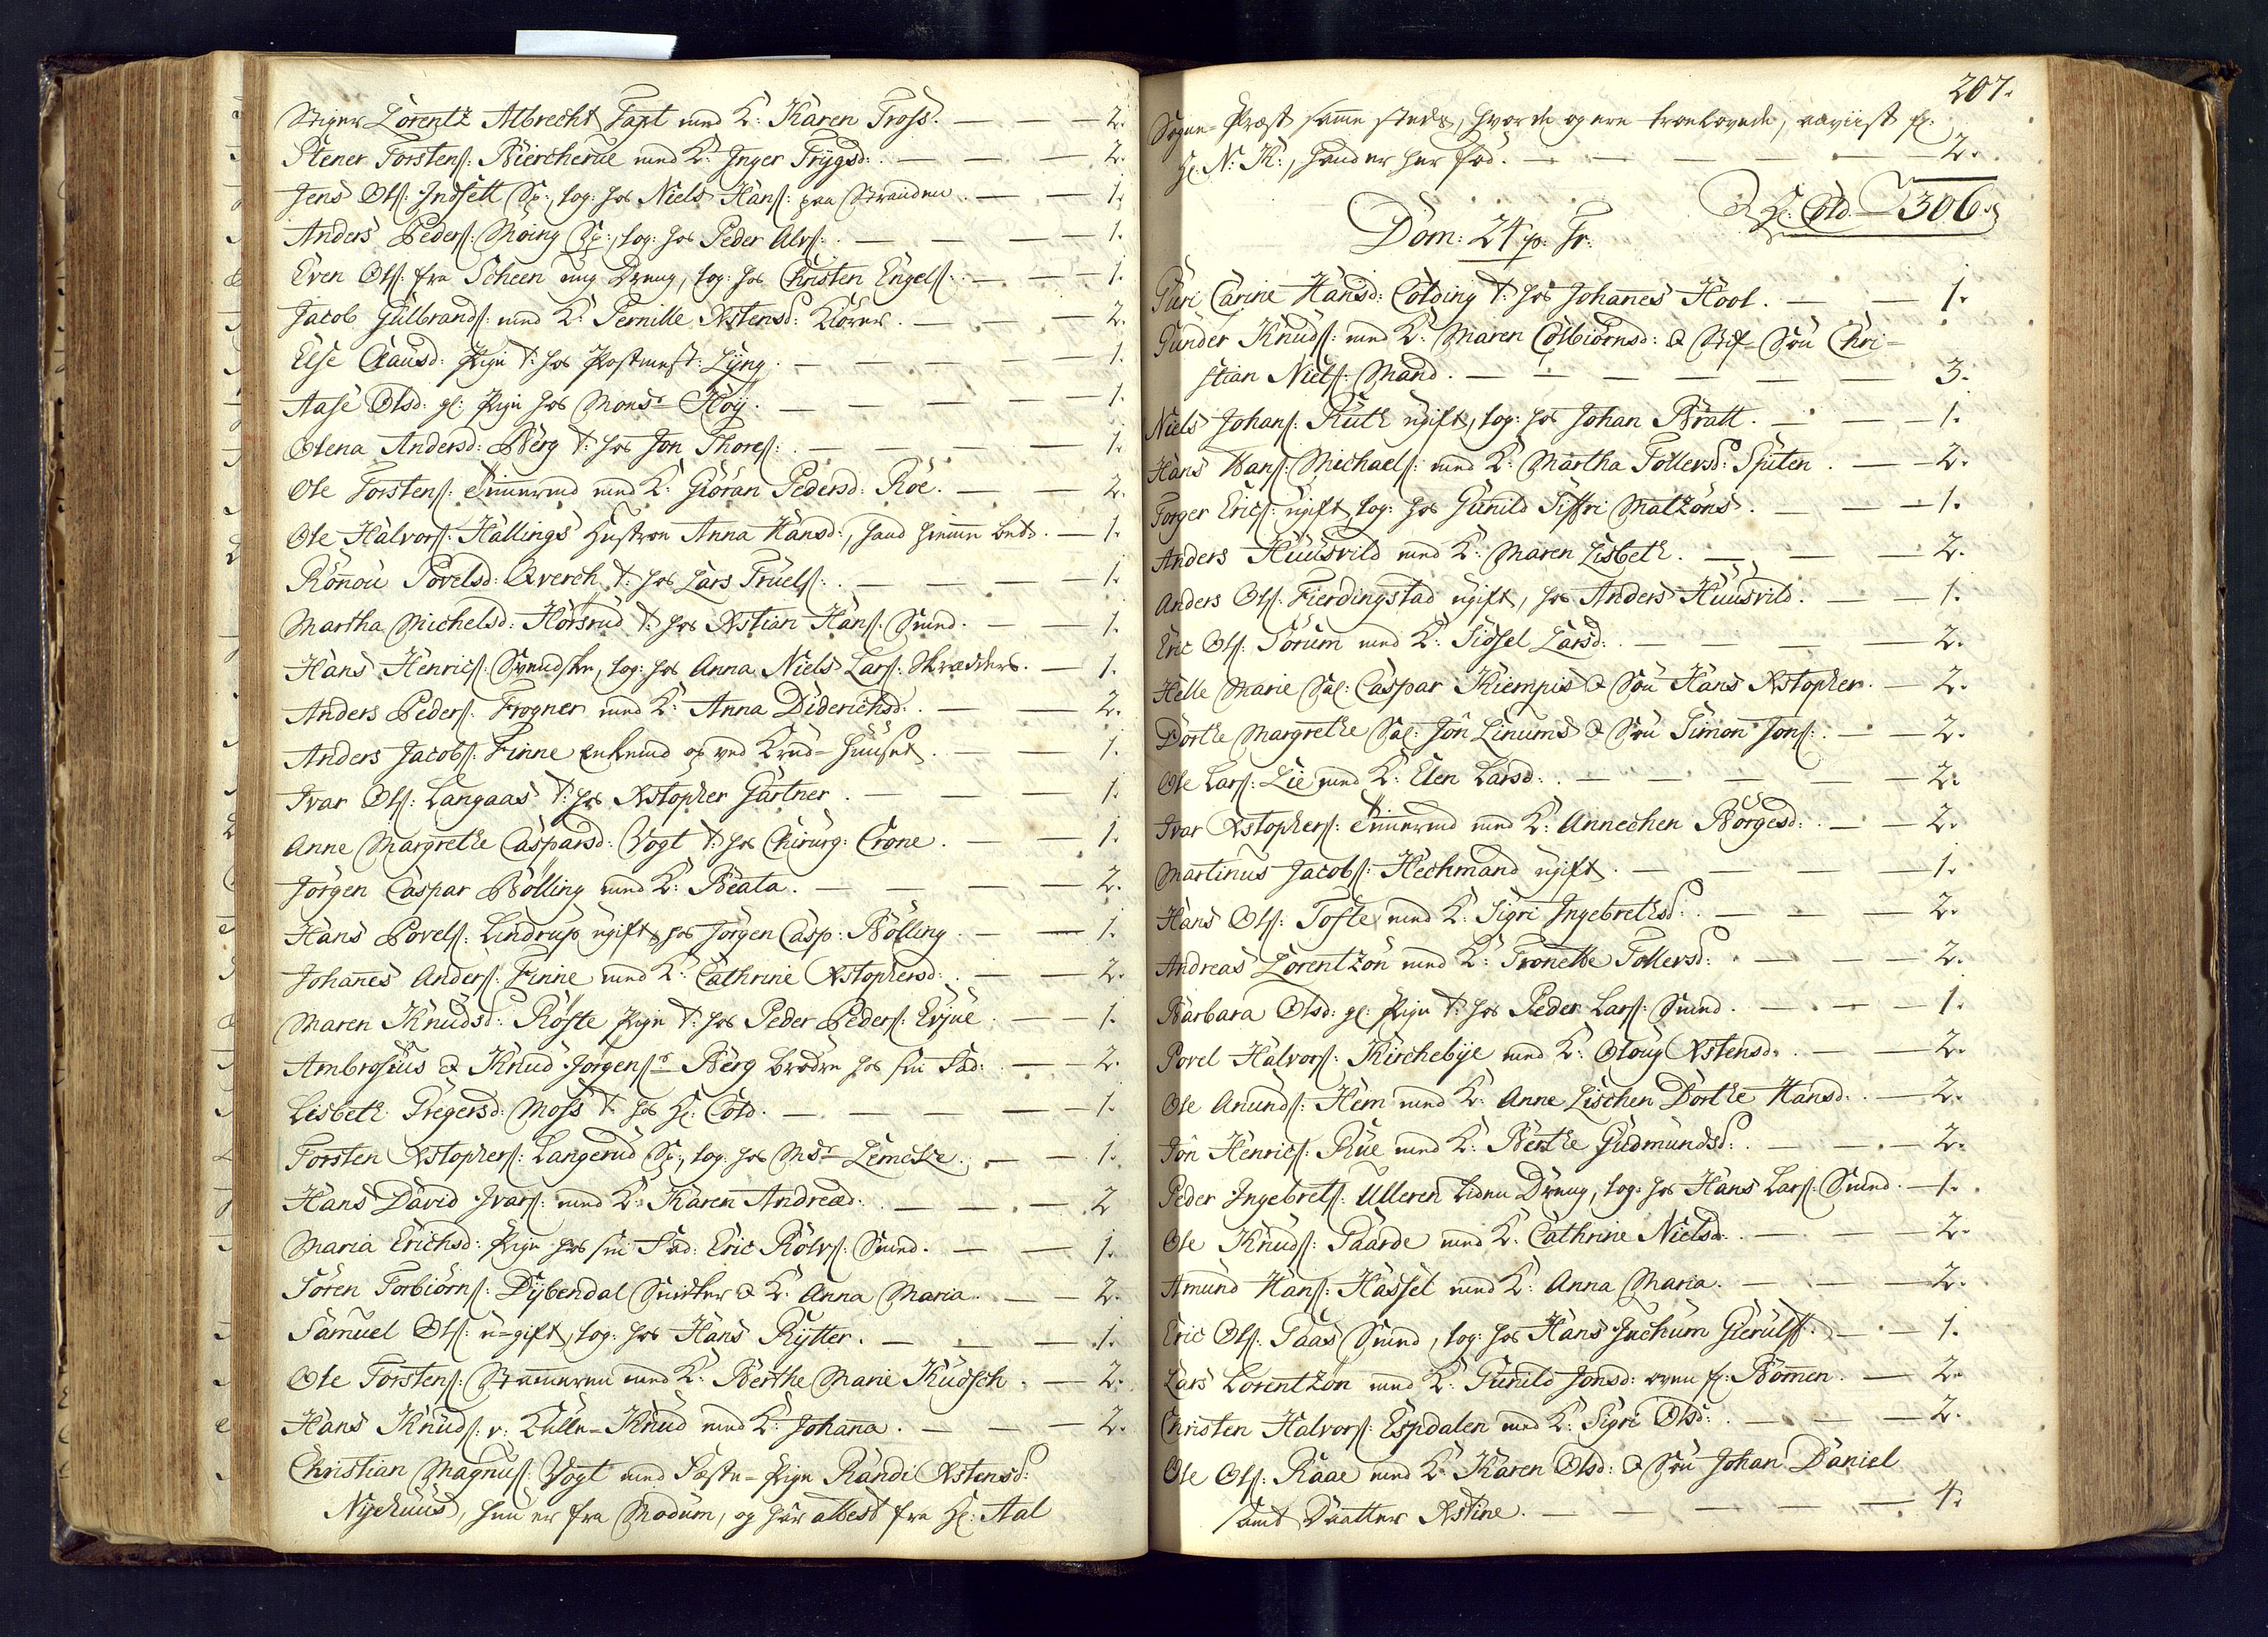 Stiger Lorentz Albrecht Fapt med K: Karen Tross. — — — 2.
Stener Torstenſ: Biercherue med K: Inger Trygsd: — — — 2.
Jens Olſ: Indsett Sp:, log: hos Niels Hanſ: paa Stranden. — — 1.
Anders Pederſ: Moing Sp:, log: hos Peder Alvſ: — — — 1.
Even Olſ: fra Scheen ung Dreng, log: hos Christen Engelſ: — — 1.
Jacob Gulbrandſ: med K: Pernille Xstensd: — — 2.
Else Clausd: Pige t: hos Postmest: Lyng. — — — 1.
Aase Olsd: gl: Pige hos Monsr Høy. — — — 1.
Olena Andersd: Berg t: hos Jon Thoreſ: — — — 1.
Ole Torstenſ: Timmermd med K: Giøran Pedersd: Røe. — — 2.
Ole Halvorſ: Hallings Hustroe Anna Hansd:, hand hiemme beds. — 1.
Ronnou Povelsd: Qverch t: hos Lars Truelſ: — — — 1.
Martha Michelsd: Horsrud t: hos Xstian Hanſ: Smed. — — 1.
Hans Henricſ: Svendske, log: hos Anna Niels Larſ: Skredders. — 1.
Anders Pederſ: Frogner med K: Anna Diderichsd: — — 2.
Anders Jacobſ: Finne Enkemd op ved Krud-Huuset. — — 1.
Ivar Olſ: Langaas t: hos Xstopher Gartner. — — — 1.
Anne Margrethe Caspersd: Vogt t: hos Chirurg: Crone. — — 1.
Jørgen Caspar Bølling med K: Beata. — — — 2.
Hans Povelſ: Lindrup ugift, hos Jørgen Casp: Bølling. — — 1.
Johanes Anderſ: Finne med K: Cathrine Xstophersd: — — 2.
Maren Knudsd: Røste Pige t: hos Peder Pederſ: Evjue. — — 1.
Ambrosius & Knud Jørgenſr Berg brødre hos sin Fad: — — 2.
Lisbeth Gregersd: Moss t: hos Hr: Cold. — — — 1.
Torsten Xstopherſ: Langerud Sp:, log: hos Msr Lemche. — — 1.
Hans David Ivarſ: med K: Karen Andread: — — — 2
Maria Erichsd: Pige hos sin Fad: Eric Rolvſ: Smed. — — 1.
Søren Torbiørnſ: Dybendal Snidker & K: Anna Maria. — — 2.
Samuel Olſ: u-gift, log: hos Hans Rytter. — — — 1.
Ole Torstenſ: med K: Berthe Marie Kudsch. — 2.
Hans Knudſ: v: Kulle-Knud med K: Johana. — — — 2.
Christian Magnuſ: Vogt med Fæste-Pige Randi Xstensd:
Nyehuus, hun er fra Modum, og har attest fra Hr: Aal
207.
Sogne-Præst samme steds, hvor de og ere troelovede, anviist fr:
Hr: N: K:, hand er her fød. — — — 2.
Hr: Cold — 306.
Dom: 24 p: Tr:
Guri Carine Hansd: Colding t: hos Johanes Hoel. — — 1.
Gunder Knudſ: med K: Maren Colbiørnsd: & Stif-Søn Chri-
stian Nielſ: Mand. — — — — 3.
Niels Johanſ: Ruth ugift, log: hos Johan Bratt. — — 1.
Hans Hanſ: Michaelſ: med K: Martha Tollevsd: Sputen. — 2.
Torger Ericſ: ugift, log: hos Gunild Siffri Matzøns. — — 1.
Anders Huusvild med K: Maren Lisbeth. — — 2.
Anders Olſ: Fierdingstad ugift, hos Anders Huusvild. — 1.
Eric Olſ: Sørum med K: Sidsel Larsd: — — — 2.
Helle Marie Sal: Caspar Kiempis & Søn Hans Xstopher. — 2.
Dorthe Margrethe Sal: Jon Linums & Søn Simon Jonſ: — 2.
Ole Larſ: Lie med K: Elen Larsd: — — — 2.
Ivar Xstopherſ: Timmermd med K: Annechen Børgesd: — 2.
Martinus Jacobſ: Hechmand ugift. — — — 1.
Hans Olſ: Tofte med K: Sigri Ingebrethsd: — — 2.
Andreas Lorentzøn med K: Tronette Tollevsd: — — 2.
Barbara Olsd: gl: Pige t: hos Peder Larſ: Smed. — — 1.
Povel Halvorſ: Kirchebye med K: Oloug Xstensd: — — 2.
Ole Anundſ: Hem med K: Anne Lischen Dorthe Hansd: — 2.
Jon Henricſ: Rue med K: Berthe Gudmundsd: — — 2.
Peder Ingebretſ: Ulleren liden Dreng, log: hos Hans Larſ: Smed. — 1.
Ole Knudſ: Gaarde med K: Cathrine Nielsd: — — 2.
Amund Hanſ: Hassel med K: Anna Maria. — — 2.
Eric Olſ: Gaas Smed, log: hos Hans Juchum Gierulff. — 1.
Lars Lorentzøn med K: Gunild Jonsd: oven f: Bommen. — 2.
Christen Halvorſ: Espdalen med K: Sigri Olsd: — — 2.
Ole Olſ: Raae med K: Karen Olsd: & Søn Johan Daniel
samt Daatter Xstine. — — — 4.